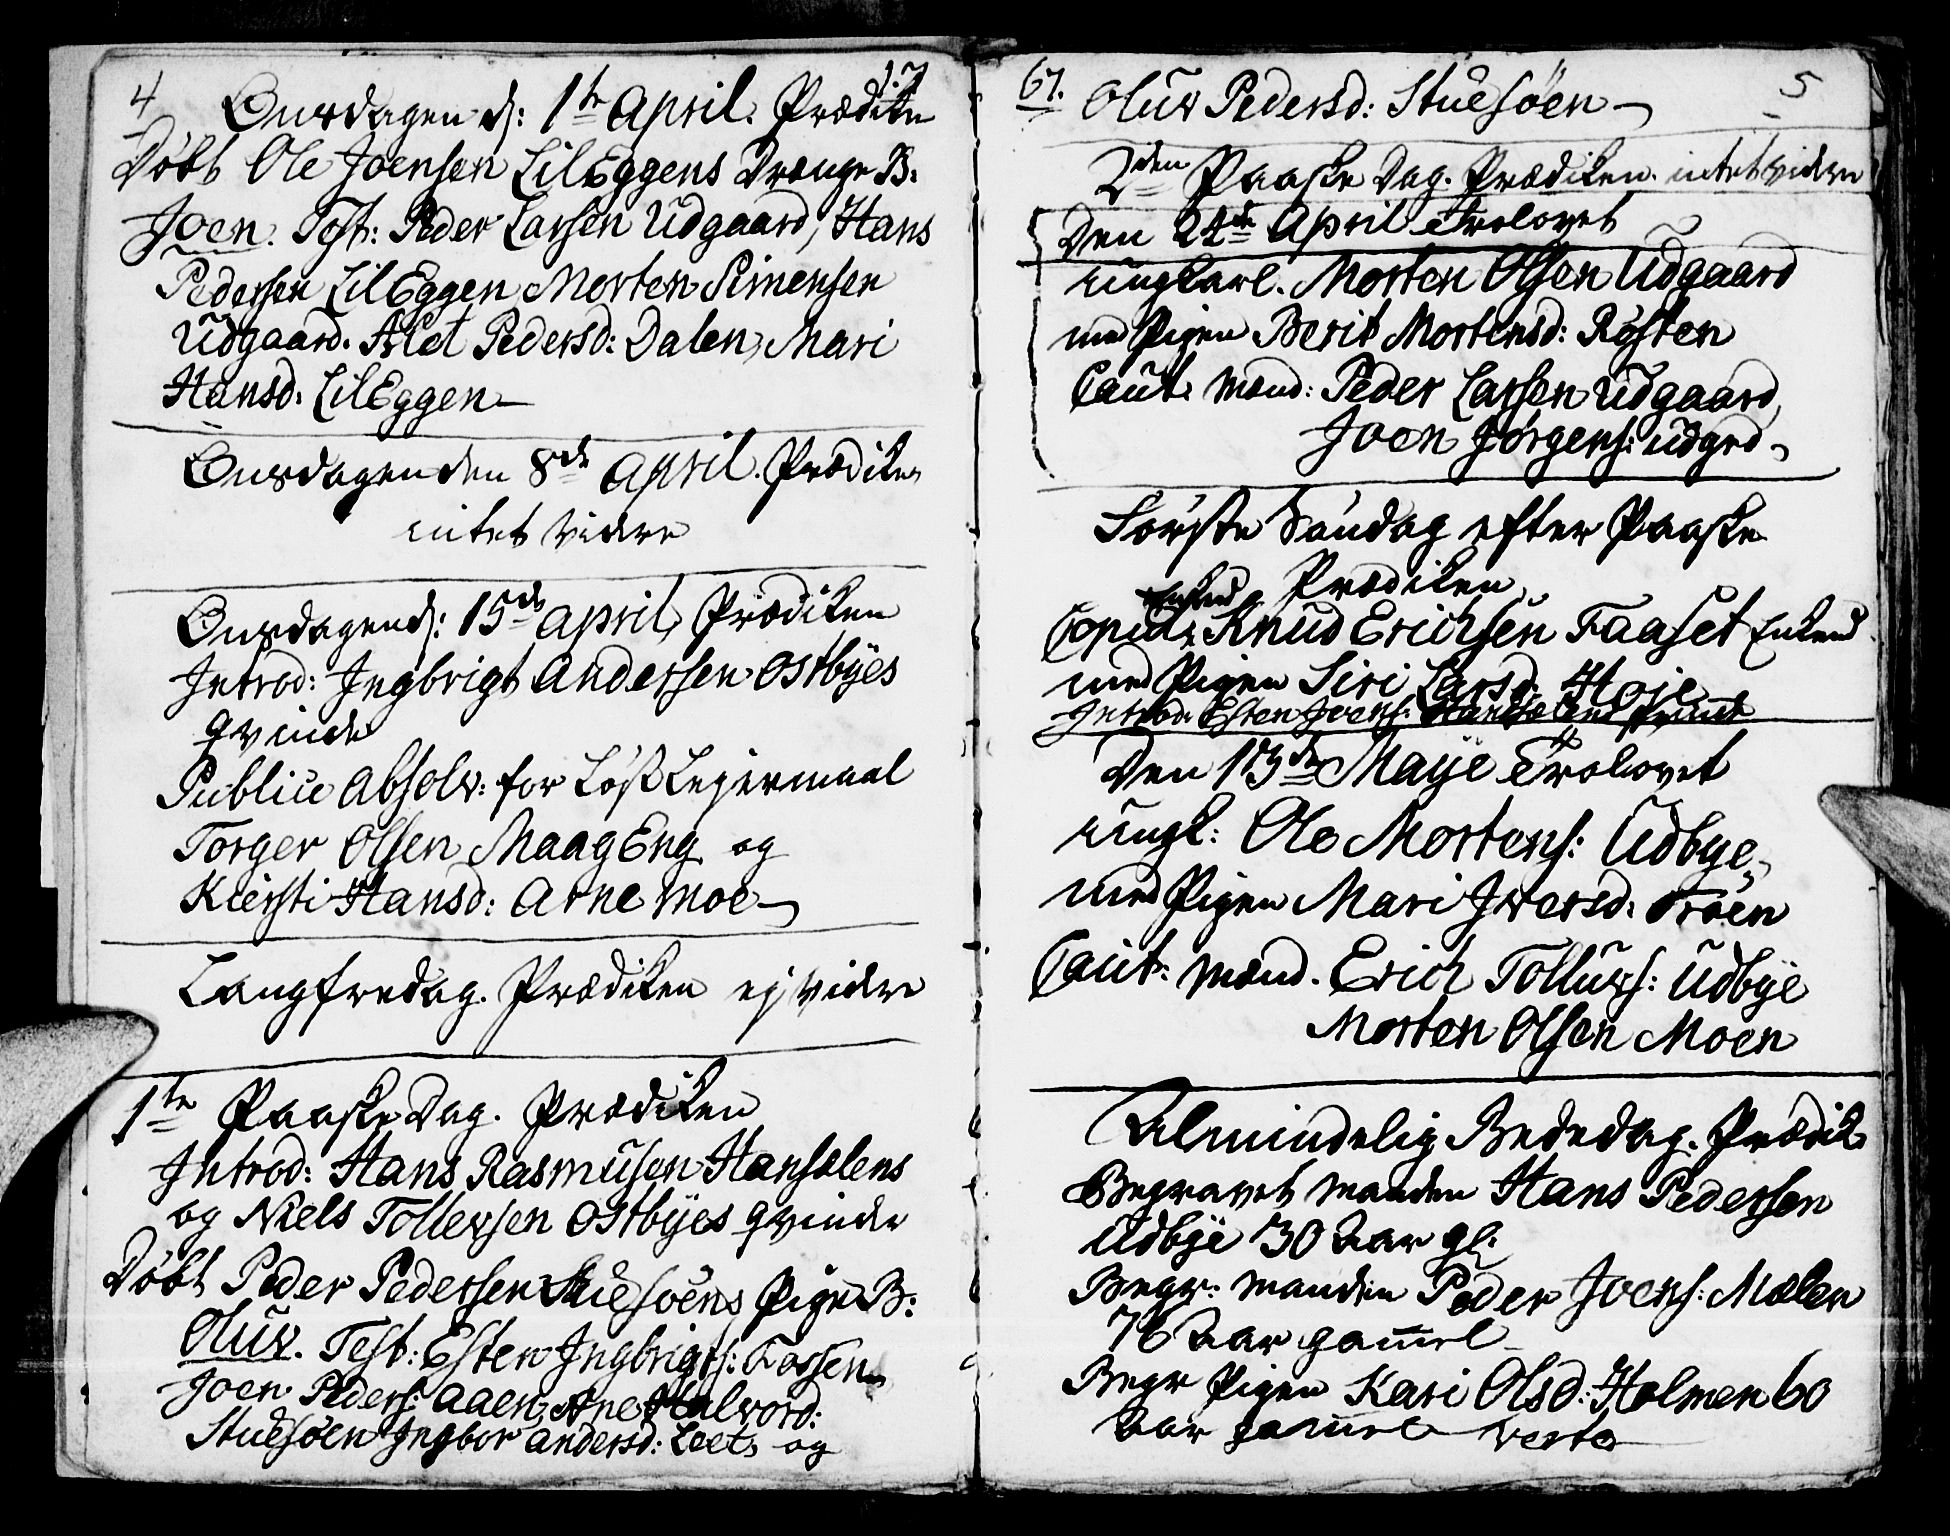 4
17
Onsdagen d: 1te April. Prædiken
Døbt Ole Joensen LilEggens Drænge B:
Joen. Test: Peder Larsen Udgaard, Hans
Pedersen LilEggen Morten Simensen
Udgaard. Aslet Pedersd: Dalen, Mari
Hansd: LilEggen
Onsdagen den 8de April. Prædiken
intet videre
Onsdagen d: 15de April, Prædiken
Introd: Ingbrigt Anderssen Ostbÿes
Qvinde
Publice Absolv: for Løst Lejermaal
Torger Olsen MaagEng og
Kiersti Hansd: Arnemoe
Langfredag. Prædiken ej videre
1te Paaske Dag. Prædiken
Introd: Hans Rasmusen Hansolens
og Niels Tollevsen Ostbÿes Qvinde
Døbt Peder Pedersen Stuesøens Pige B:
Oluv. Test: Esten Ingbrigts: Fossen
Joen Peders: Aaen, Ane Halvord:
Stuesøen Ingbor Andersd: Leet, og
67.
5
Oluv Pedersd: Stuesøen
2den Paaske Dag. Prædiken. intet videre
Den 24de April Trolovet
ungkarl. Morten Olsen Udgaard
med Pigen Berit Mortensd: Røsten
Caut. Mænd: Peder Larsen Udgaard,
Joen Jørgens: udgrd
Første Søndag efter Paaske
Prædiken
Copul: Knud Erichsen Faaset Enkemd
med Pigen Siri Larsd: Høje
Introd: Esten Joens:
Den 13de Maÿe Trolovet
ungk: Ole Mortens: Udbye,
med Pigen Mari Iversd: Trøen
Caut: Mænd. Erich Tollevs: Udbÿe
Morten Olsen Moen
Almindelig Bededag. Prædik
Begravet Manden Hans Pedersen
Udbÿe 30 Aar gl.
Begr: Manden Peder Joens: Mælen
76 Aar gamel
Begr Pigen Kari Olsd: Holmen 60
Aar gamel verte